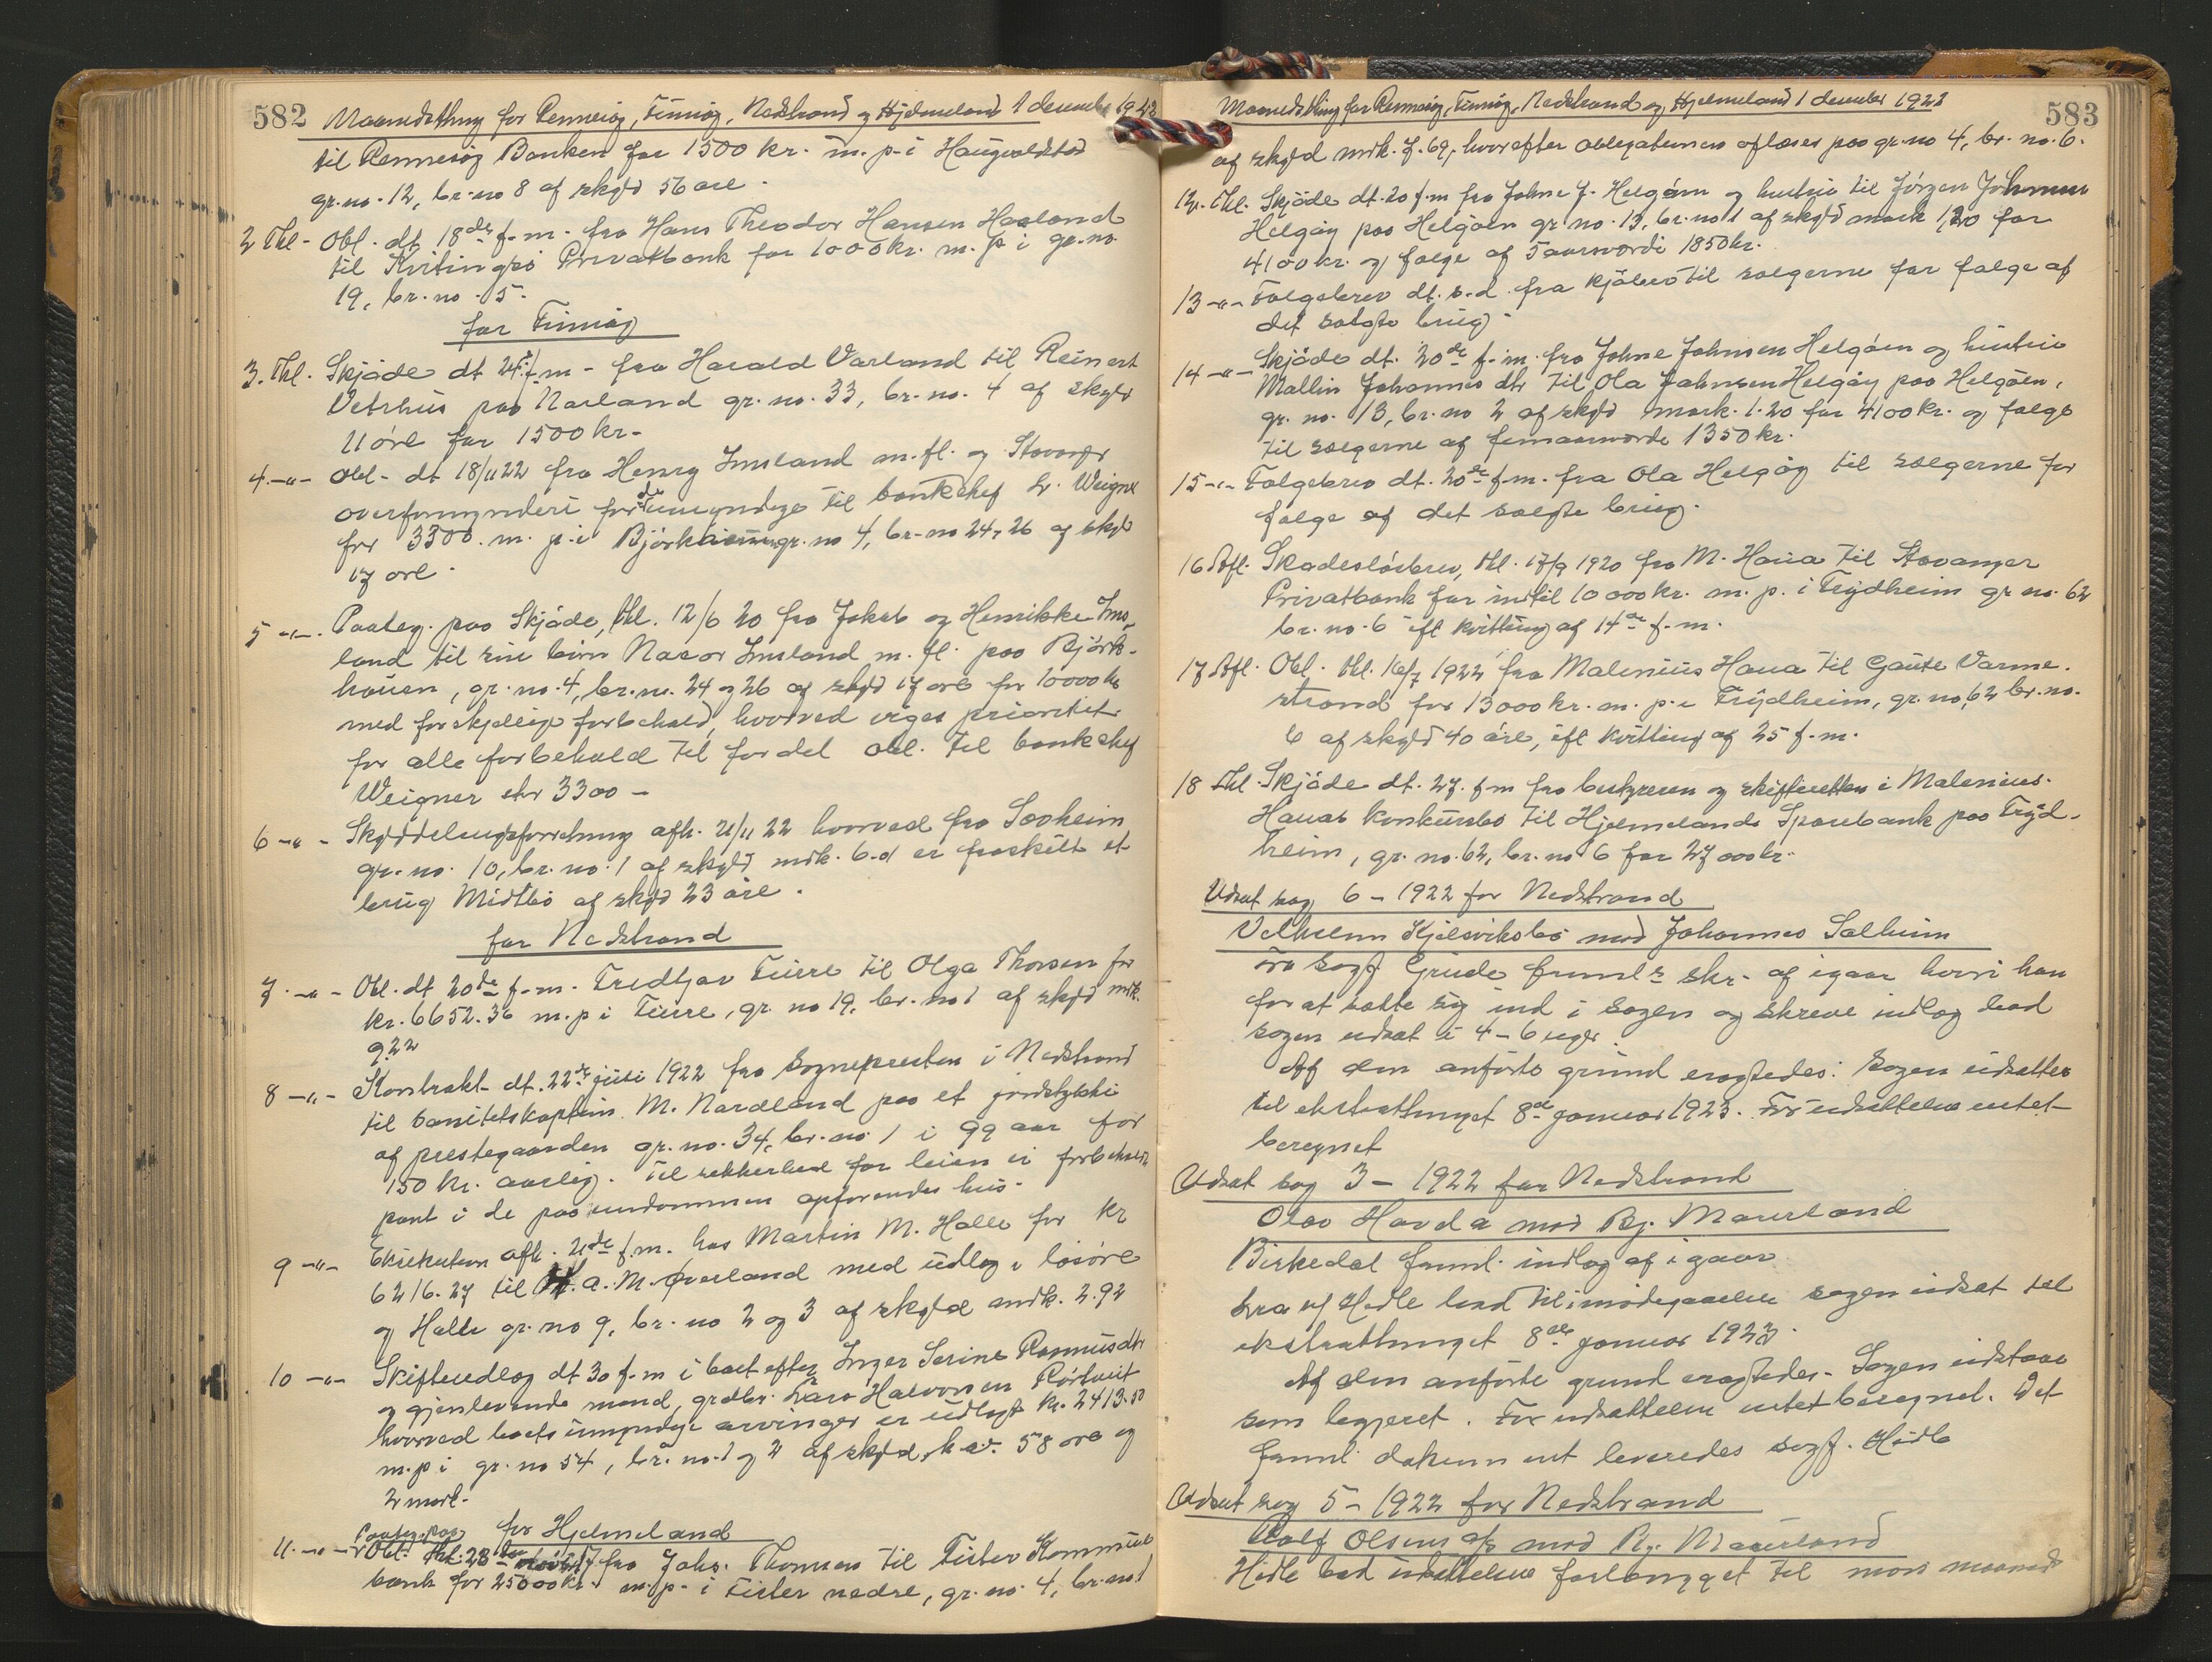 582 Maanedsthing for Rennesøy, Finnøy, Nedstrand og Hjelmeland 1 december 1922
til Rennesøy Banken for 1500 kr. m. p. i Haugvaldstad
gr. no. 12, br. no 8 af skyld 56 øre.
2 Thl. Obl. dt. 18de f. m. fra Hans Theodor Hansen Haaland
til Kvitingsø Privatbank for 1000 kr. m. p. i gr. no.
19, br. no. 5.
for Finnøy
3. Thl. Skjøde dt 24. f. m. fra Harald Varland til Reinert
Vetrhus paa Narland gr. no. 33, br. no. 4 af skyld
11 øre for 1500 kr.
4 -"- Obl. dt 18/11 22 fra Henry Imsland m. fl. og Stavanger
overformynderi for de umyndige til bankchef Hr. Weigner
for 3300. m. p. i Bjørkhaugen gr. no 4, br. no 24, 26 af skyld
17 øre.
5 -"- Paateg. paa Skjøde, thl. 12/6 20 fra Jakob og Henrikke Ims-
land til sin børn Nacor Imsland m. fl. paa Bjørk-
hauen, gr. no. 4, br. no. 24 og 26 af skyld 17 øre for 10000 kr
med forskjellige forbehold, hvorved viges prioritet
for alle forbehold til fordel obl. til bankchef
Weigner skr 3300 -
6 -"- Skylddelingsforretning afh. 21/11 22 hvorved fra Søvheim
gr. no. 10, br. no. 1 af skyld mrk. 6.01 er fraskilt et
brug Midtbø af skyld 23 øre.
for Nedstrand
7 -"- Obl. dt 20de f. m. Fredtjov Fuerre til Olga Thorsen for
kr. 6652.36 m. p i Fuerre, gr. no 19, br. no 1 af skyld mrk.
9.22
8 -"- Kontrakt dt. 22de juli 1922 fra Sognepresten i Nedstrand
til sanitetskaptein M. Nordland paa et jordstykke
af prestegaarden gr. no. 34, br. no. 1 i 99 aar for
150 kr. aarlig. Til sikkerhed for leien er forbeholdt
pant i de paa eiendommen opførendes hus.
9 -"- Eksekution afh. 21de f. m. hos Martin M. Halle for kr
6216.27 til A. M. Øverland med udlæg i løsøre
og Halle gr. no 9, br. no 2 og 3 af skyld mrk. 2.92
10 -"- Skifteudlæg dt 30 f. m i boet efter Inger Serine Rasmusdtr
og gjenlevende mand, grdbr. Lars Halvorsen Rørtveit
hvorved boets umyndige arvinger er udlagt kr. 2413.50
m. p i gr. no 54, br. no. 1 og 2 af skyld h. v. 58 øre og
2 mark.
for Hjelmeland
11. -"- Paateg. paa Obl. thl. 28 fra Johs. Thomsen til Fister Kommune
bank for 25000 kr. m. p. i Fister nedre, gr. no. 4, br. no 1
583
Maanedsthing for Rennesøy, Finnøy, Nedstrand og Hjelmeland 1 december 1922
af skyld mrk. 7.69, hvorefter obligationen aflæses paa gr. no 4, br. no. 6.
12. Thl. Skjøde dt. 20 f. m fra Johne J. Helgøen og hustru til Jørgen Johnsen
Helgøy paa Helgøen gr no. 13, br. no 1 af skyld mark 1,20 for
4100 kr. og følge af 5 aarsværdi 1850 kr.
13 -"- Følgebrev dt. s. d. fra kjøber til sælgerne for følge af
det solgte brug.
14 -"- Skjøde dt. 20de f. m. fra Johne Johnsen Helgøen og hustru
Mallin Johannes dtr til Ola Johnsen Helgøy paa Helgøen,
gr. no. 13, br. no 2 af skyld mark. 1.20 for 4100 kr. og følge
til sælgerne af femaarsværdi 1350 kr.
15 -"- Følgebrev dt. 20de f. m. fra Ola Helgøy til sælgerne for
følge af det solgte brug.
16 Afl. Skadesløsbrev, thl. 17/9 1920 fra M. Haua til Stavanger
Privatbank for indtil 10000 kr. m. p. i Frydheim gr no. 62
br. no. 6 ift kvittering af 14de f. m.
17 Afl. Obl. thl. 16/7 1922 fra Malenius Haua til Gaute Varme-
strand for 13000 kr. m. p. i Frydheim, gr. no, 62 br. no.
6 af skyld 40 øre, ift kvittering af 25 f. m.
18 Thl. Skjøde dt. 27. f. m fra bestyreren og skifteretten i Malenius
Hauas konkursbo til Hjelmelands Sparebank paa Fryd-
heim, gr. no. 62, br. no 6 for 27000 kr.
Udsat sag 6 - 1922 for Nedstrand
Kjelsviksbø mod Johannes Salheim
Fra sagf. Grude freml. skr. af igaar hvori han
for at sætte sig ind i sagen og skreve indlæg bad
sagen udsat i 4 - 6 uger.
Af den anførte grund eragtedes: Sagen udsattes
til ekstrathinget 8de januar 1923. For udsættelsen intet
beregnet
Udsat sag 3 - 1922 for Nedstrand
Olav Havda mod Rg. Mauerland
Birkedal freml. indlæg af igaar
sagf Hidle bad til imødegaaelse sagen udsat til
ekstrathinget 8de januar 1923.
Af den anførte grund eragtedes. Sagen udstaar
som begjæret. For udsættelsen intet beregnet. Det
freml. dokument leveredes sagf. Hidle
Udsat sag 5 - 1922 for Nedstrand
Rolf Olsen a/s mod Rg. Mauerland
Hidle bad udsættelsen forlænget til maaned